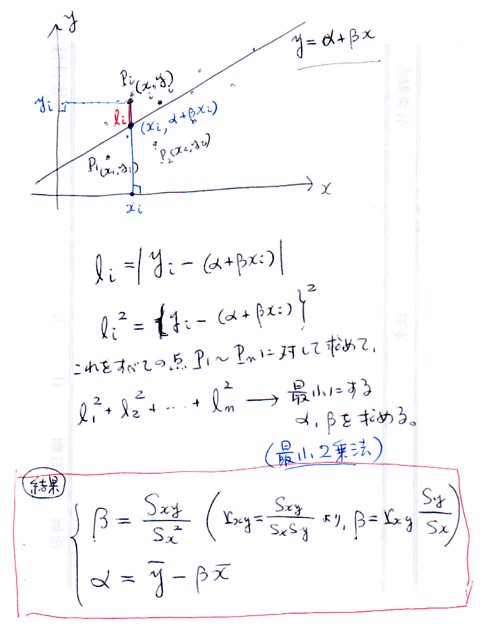 y
y = α + βx
Pi (xi, yi)
yi
li
(xi, α+βxi)
P1 (x1, y1)
P2 (x2, y2)
x
xi
li = | yi − (α+βxi) |
li² = { yi − (α+βxi) }²
これをすべての点 P1 〜 Pn に対して求めて、
l1² + l2² + ‥‥ + ln² → 最小にする
α, β を求める。
(最小2乗法)
結果
β = Sxy / Sx² ( rxy = Sxy / SxSy より, β = rxy Sy / Sx )
α = ȳ − βx̄